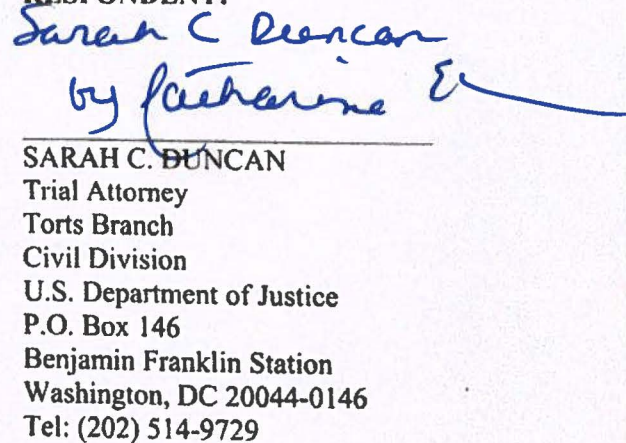 RESPONDENT:
Sarah C Duncan
by Catharine E
SARAH C. DUNCAN
Trial Attorney
Torts Branch
Civil Division
U.S. Department of Justice
P.O. Box 146
Benjamin Franklin Station
Washington, DC 20044-0146
Tel: (202) 514-9729